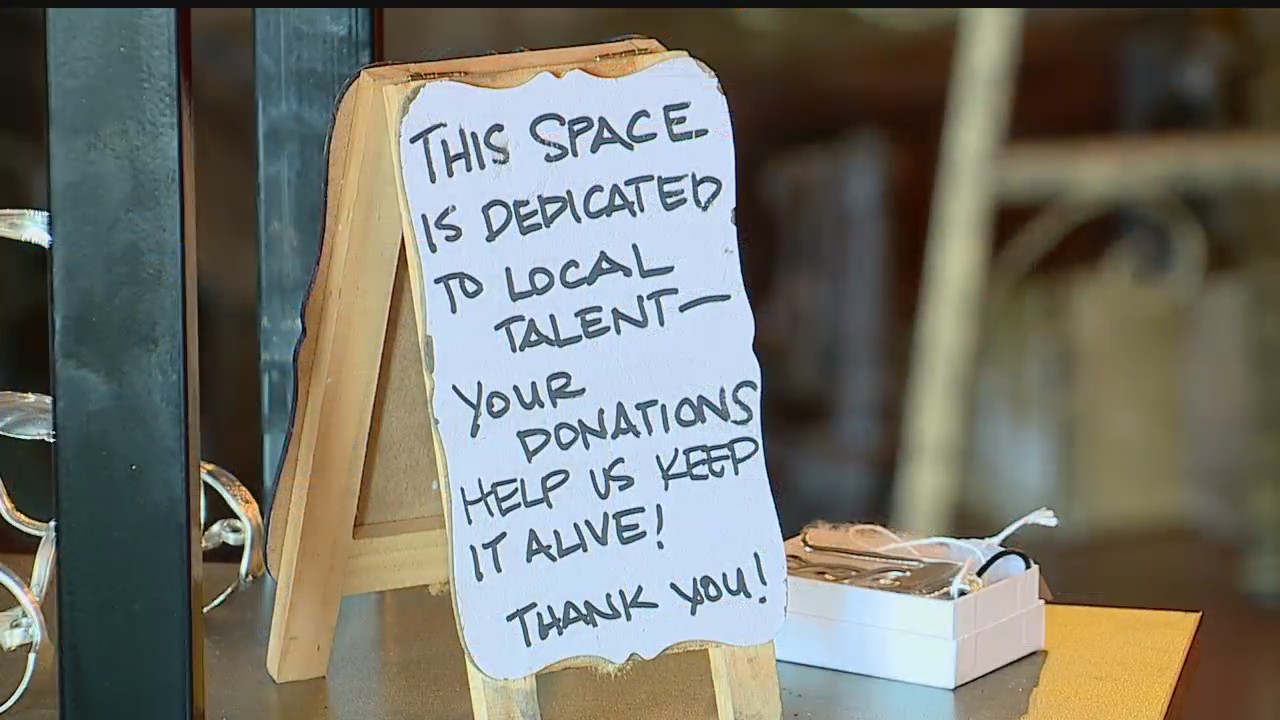 THIS SPACE
IS DEDICATED
TO LOCAL
TALENT—
YOUR
DONATIONS
HELP US KEEP
IT ALIVE!
THANK YOU!